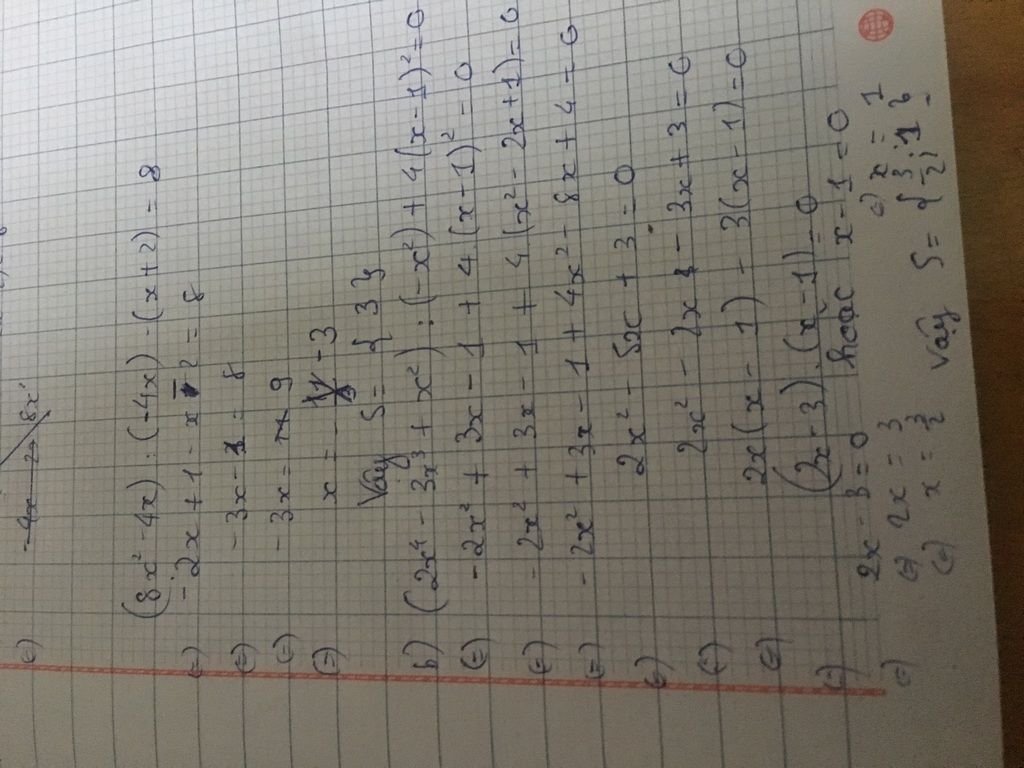 (8x² - 4x) : (-4x) - (x + 2) = 8
(=) -2x + 1 - x - 2 = 8
(=) -3x - 1 = 8
(=) -3x = 9
(=) x = -3
Vậy S = { 3 }
b) (2x⁴ - 3x³ + x²) : (-x²) + 4(x - 1)² = 0
(=) -2x² + 3x - 1 + 4.(x - 1)² = 0
(=) -2x² + 3x - 1 + 4(x² - 2x + 1) = 0
(=) -2x² + 3x - 1 + 4x² - 8x + 4 = 0
(=) 2x² - 5x + 3 = 0
(=) 2x² - 2x - 3x + 3 = 0
(=) 2x(x - 1) - 3(x - 1) = 0
(=) (2x - 3).(x - 1) = 0
(=) 2x - 3 = 0 hoặc x - 1 = 0
(=) 2x = 3 (=) x = 1
(=) x = 3/2 Vậy S = { 3/2 ; 1 }